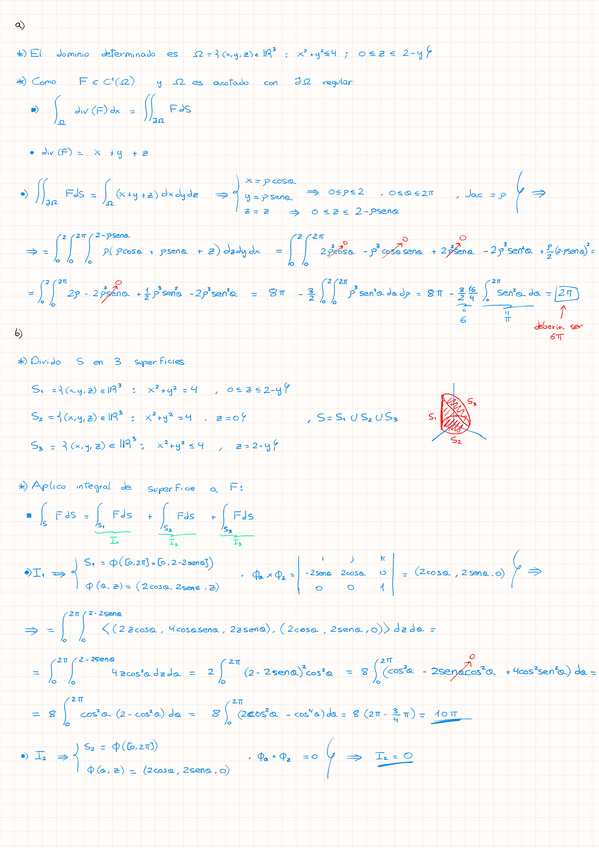 a)
*) El dominio determinado es Ω = {(x,y,z) ∈ ℝ³ : x²+y² ≤ 4 ; 0 ≤ z ≤ 2-y}
*) Como F ∈ C¹(Ω) y Ω es acotado con ∂Ω regular
•) ∫_Ω div(F) dx = ∬_∂Ω F dS
• div(F) = x + y + z
•) ∬_∂Ω F dS = ∫_Ω (x+y+z) dx dy dz ⇒ { x = ρ cosα y = ρ senα z = z ⇒ 0≤ρ≤2 , 0≤α≤2π , Jac = ρ ⇒ 0 ≤ z ≤ 2-ρsenα } ⇒
⇒ = ∫₀² ∫₀^2π ∫₀^2-ρsenα ρ(ρcosα + ρsenα + z) dz dy dx = ∫₀² ∫₀^2π 2ρ²cosα - ρ³cosαsenα + 2ρ²senα - 2ρ³sen²α + ρ/2 (2-ρsenα)² =
= ∫₀² ∫₀^2π 2ρ - 2ρ²senα + 1/2 ρ³sen²α - 2ρ³sen²α = 8π - 3/2 ∫₀² ∫₀^2π ρ³sen²α dα dρ = 8π - 3/2 16/4 ∫₀^2π sen²α dα = 2π
6 π
deberia ser
6π
b)
*) Divido S en 3 superficies
S₁ = {(x,y,z) ∈ ℝ³ : x²+y² = 4 , 0≤z≤2-y}
S₂ = {(x,y,z) ∈ ℝ³ : x²+y² = 4 , z=0} , S = S₁ ∪ S₂ ∪ S₃
S₃ = {(x,y,z) ∈ ℝ³ : x²+y² ≤ 4 , z=2-y}
S₁ S₃
S₂
*) Aplico integral de superficie a F:
▪ ∫_S F dS = ∫_S₁ F dS + ∫_S₂ F dS + ∫_S₃ F dS
I₁ I₂ I₃
•) I₁ ⇒ { S₁ = Φ([0,2π]×[0,2-2senα]) Φ(α,z) = (2cosα, 2senα, z) . Φα × Φz = | i j k -2senα 2cosα 0 0 0 1 | = (2cosα, 2senα, 0) } ⇒
⇒ = ∫₀^2π ∫₀^2-2senα ⟨(2zcosα, 4cosαsenα, 2zsenα), (2cosα, 2senα, 0)⟩ dz dα =
= ∫₀^2π ∫₀^2-2senα 4zcos²α dz dα = 2 ∫₀^2π (2-2senα)² cos²α = 8 ∫₀^2π (cos²α - 2senαcos²α + 4cos²sen²α) dα =
= 8 ∫₀^2π cos²α (2-cos²α) dα = 8 ∫₀^2π (2cos²α - cos⁴α) dα = 8 (2π - 3/4 π) = 10π
•) I₂ ⇒ { S₂ = Φ([0,2π]) Φ(α,z) = (2cosα, 2senα, 0) . Φα × Φz = 0 } ⇒ I₂ = 0